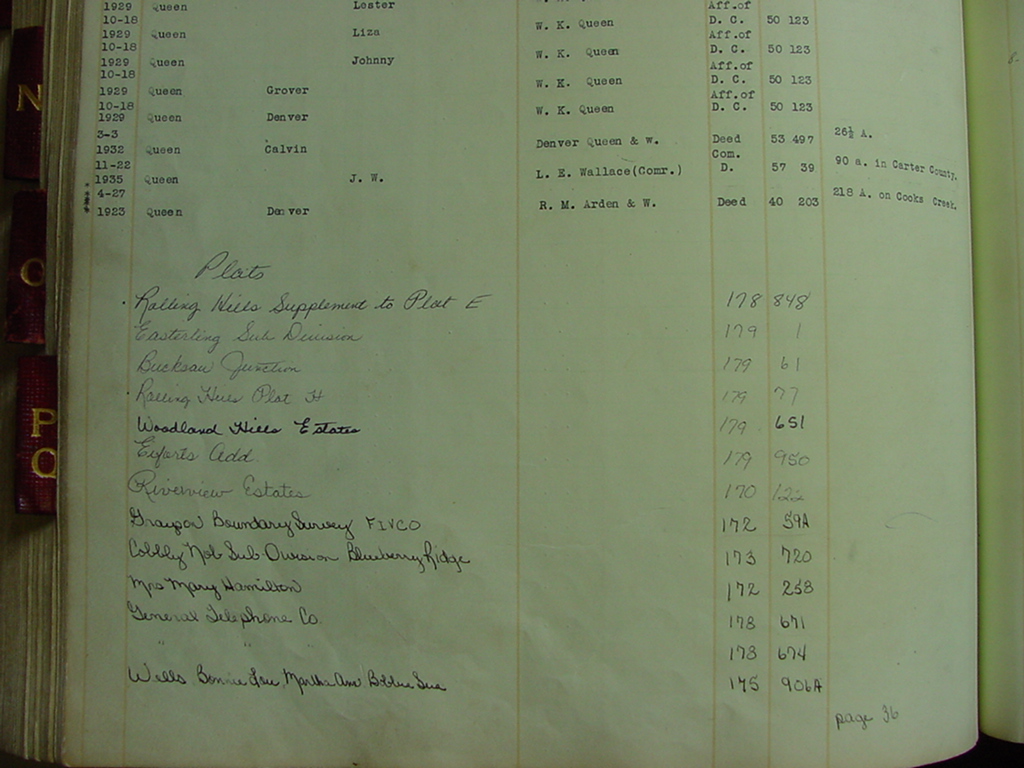 1929 Queen Lester Aff.of
10-18 W. K. Queen D. C. 50 123
1929 Queen Liza Aff.of
10-18 W. K. Queen D. C. 50 123
1929 Queen Johnny Aff.of
10-18 W. K. Queen D. C. 50 123
1929 Queen Grover Aff.of
10-18 W. K. Queen D. C. 50 123
1929 Queen Denver
3-3 Denver Queen & W. Deed 53 497 26½ A.
1932 Queen Calvin Com.
11-22 L. E. Wallace(Comr.) D. 57 39 90 a. in Carter County.
1935 Queen J. W.
4-27 R. M. Arden & W. Deed 40 203 218 A. on Cooks Creek.
1923 Queen Denver
Plats
Rolling Hills Supplement to Plat E 178 848
Easterling Sub Division 179 1
Bucksaw Junction 179 61
Rolling Hills Plat H 179 77
Woodland Hills Estates 179 651
Eiferts Add. 179 950
Riverview Estates 170 122
Grayson Boundary Survey FIVCO 172 59A
Cobbly Nob Sub-Division Blueberry Ridge 173 720
Mrs Mary Hamilton 172 258
General Telephone Co. 178 671
" " 173 674
Wells Bonnie Lou, Martha Ann Bobbie Sue 175 906A
page 36
N
O
P
Q